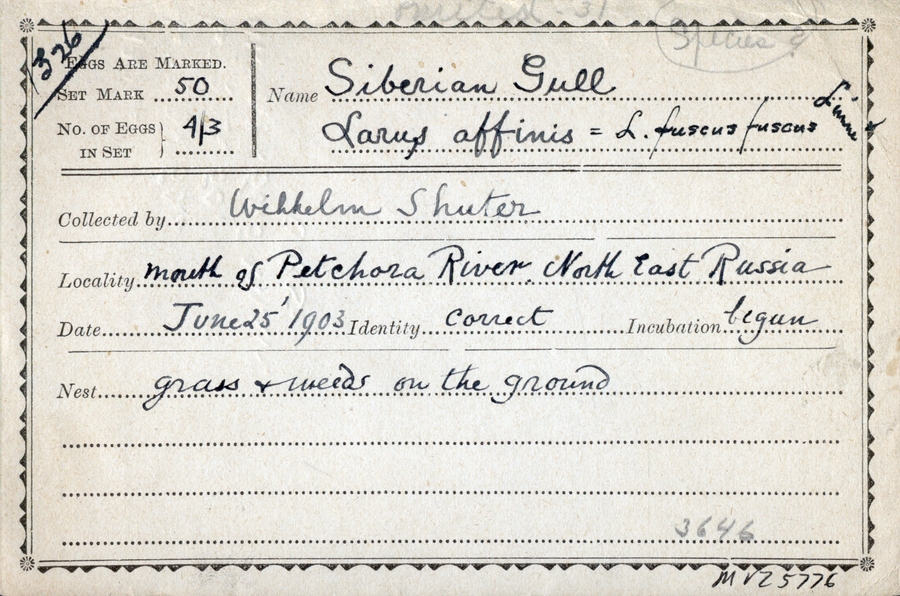 omitted - 31
Species ?
326
EGGS ARE MARKED.
SET MARK 50
NO. OF EGGS IN SET } 4/3
Name Siberian Gull
Larus affinis = L. fuscus fuscus Linne
Collected by Wilhelm Shuter
Locality mouth of Petchora River. North East Russia
Date June 25' 1903 Identity correct Incubation begun
Nest grass & weeds on the ground
3646
MVZ 5776